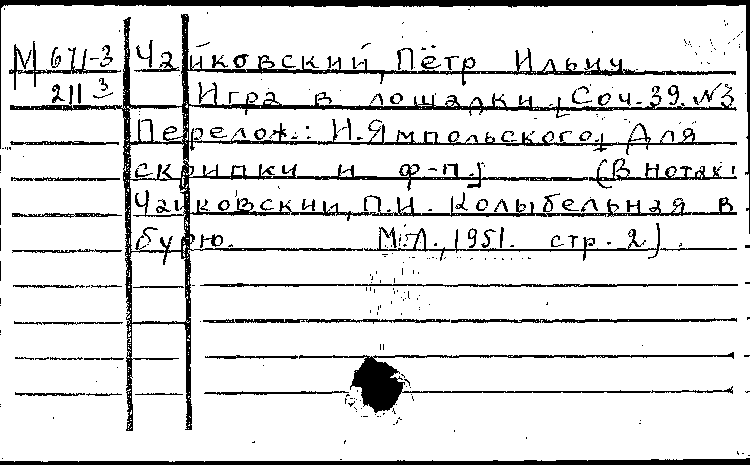 М 671-3 Чайковский, Пётр Ильич
211 3 Игра в лошадки [Соч. 39. №3
Перелож.: И. Ямпольского. Для
скрипки и ф-п.] (В нотах:
Чайковский, П.И. Колыбельная в
бурю. М.-Л., 1951. стр. 2).